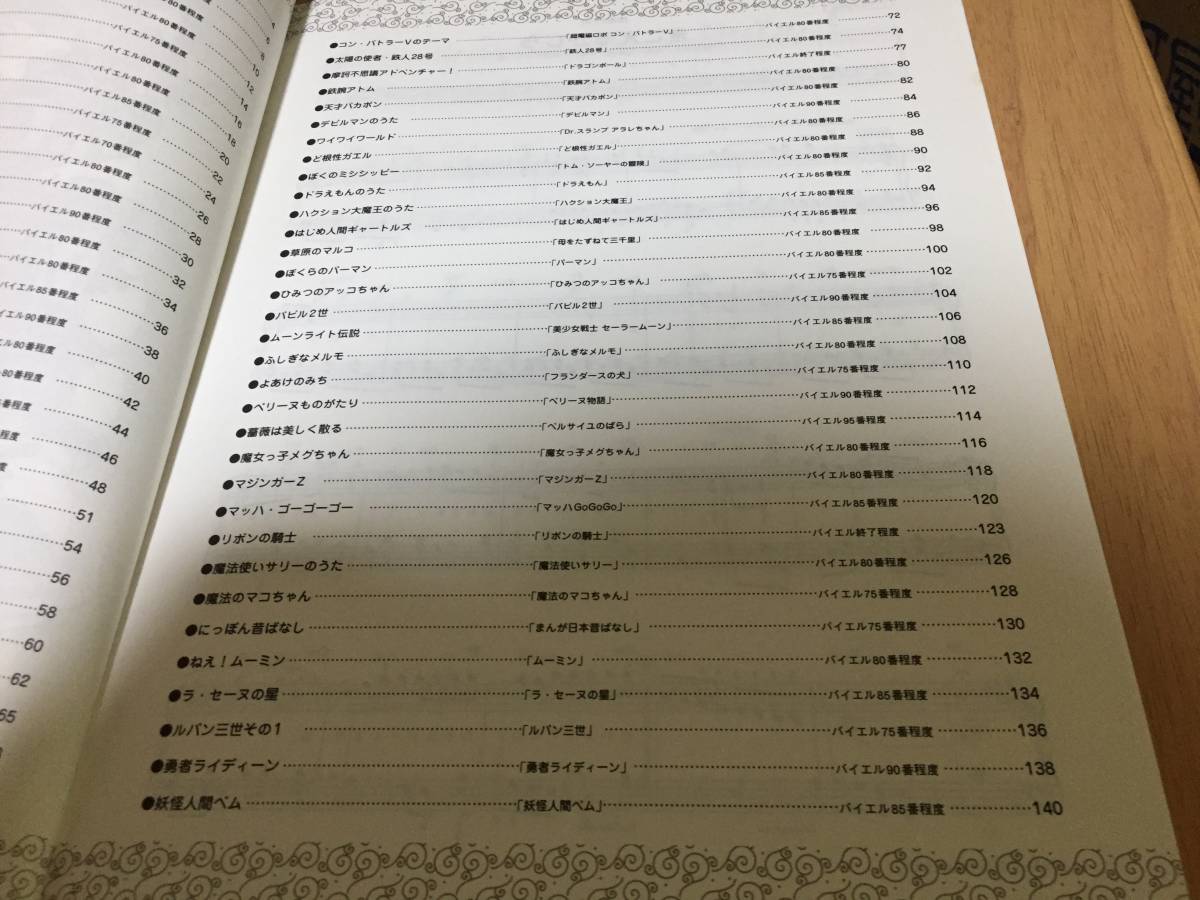 4
6
バイエル80番程度 8
バイエル75番程度 10
バイエル80番程度 12
バイエル80番程度 14
バイエル80番程度 16
バイエル85番程度 18
バイエル75番程度 20
バイエル70番程度 22
バイエル80番程度 24
バイエル80番程度 26
バイエル80番程度 28
バイエル90番程度 30
バイエル80番程度 32
バイエル80番程度 34
バイエル85番程度 36
イエル90番程度 38
エル80番程度 40
80番程度 42
5番程度 44
番程度 46
程度 48
51
54
56
58
60
62
65
●コン・バトラーVのテーマ 「超電磁ロボ コン・バトラーV」 バイエル80番程度 72
●太陽の使者・鉄人28号 「鉄人28号」 バイエル80番程度 74
●摩訶不思議アドベンチャー! 「ドラゴンボール」 バイエル終了程度 77
●鉄腕アトム 「鉄腕アトム」 バイエル80番程度 80
●天才バカボン 「天才バカボン」 バイエル90番程度 82
●デビルマンのうた 「デビルマン」 バイエル90番程度 84
●ワイワイワールド 「Dr.スランプ アラレちゃん」 バイエル80番程度 86
●ど根性ガエル 「ど根性ガエル」 バイエル80番程度 88
●ぼくのミシシッピー 「トム・ソーヤーの冒険」 バイエル80番程度 90
●ドラえもんのうた 「ドラえもん」 バイエル85番程度 92
●ハクション大魔王のうた 「ハクション大魔王」 バイエル80番程度 94
●はじめ人間ギャートルズ 「はじめ人間ギャートルズ」 バイエル85番程度 96
●草原のマルコ 「母をたずねて三千里」 バイエル80番程度 98
●ぼくらのパーマン 「パーマン」 バイエル80番程度 100
●ひみつのアッコちゃん 「ひみつのアッコちゃん」 バイエル75番程度 102
●バビル2世 「バビル2世」 バイエル90番程度 104
●ムーンライト伝説 「美少女戦士 セーラームーン」 バイエル85番程度 106
●ふしぎなメルモ 「ふしぎなメルモ」 バイエル80番程度 108
●よあけのみち 「フランダースの犬」 バイエル75番程度 110
●ペリーヌものがたり 「ペリーヌ物語」 バイエル90番程度 112
●薔薇は美しく散る 「ベルサイユのばら」 バイエル95番程度 114
●魔女っ子メグちゃん 「魔女っ子メグちゃん」 バイエル80番程度 116
●マジンガーZ 「マジンガーZ」 バイエル80番程度 118
●マッハ・ゴーゴーゴー 「マッハGoGoGo」 バイエル85番程度 120
●リボンの騎士 「リボンの騎士」 バイエル終了程度 123
●魔法使いサリーのうた 「魔法使いサリー」 バイエル80番程度 126
●魔法のマコちゃん 「魔法のマコちゃん」 バイエル75番程度 128
●にっぽん昔ばなし 「まんが日本昔ばなし」 バイエル75番程度 130
●ねえ!ムーミン 「ムーミン」 バイエル80番程度 132
●ラ・セーヌの星 「ラ・セーヌの星」 バイエル85番程度 134
●ルパン三世その1 「ルパン三世」 バイエル75番程度 136
●勇者ライディーン 「勇者ライディーン」 バイエル90番程度 138
●妖怪人間ベム 「妖怪人間ベム」 バイエル85番程度 140